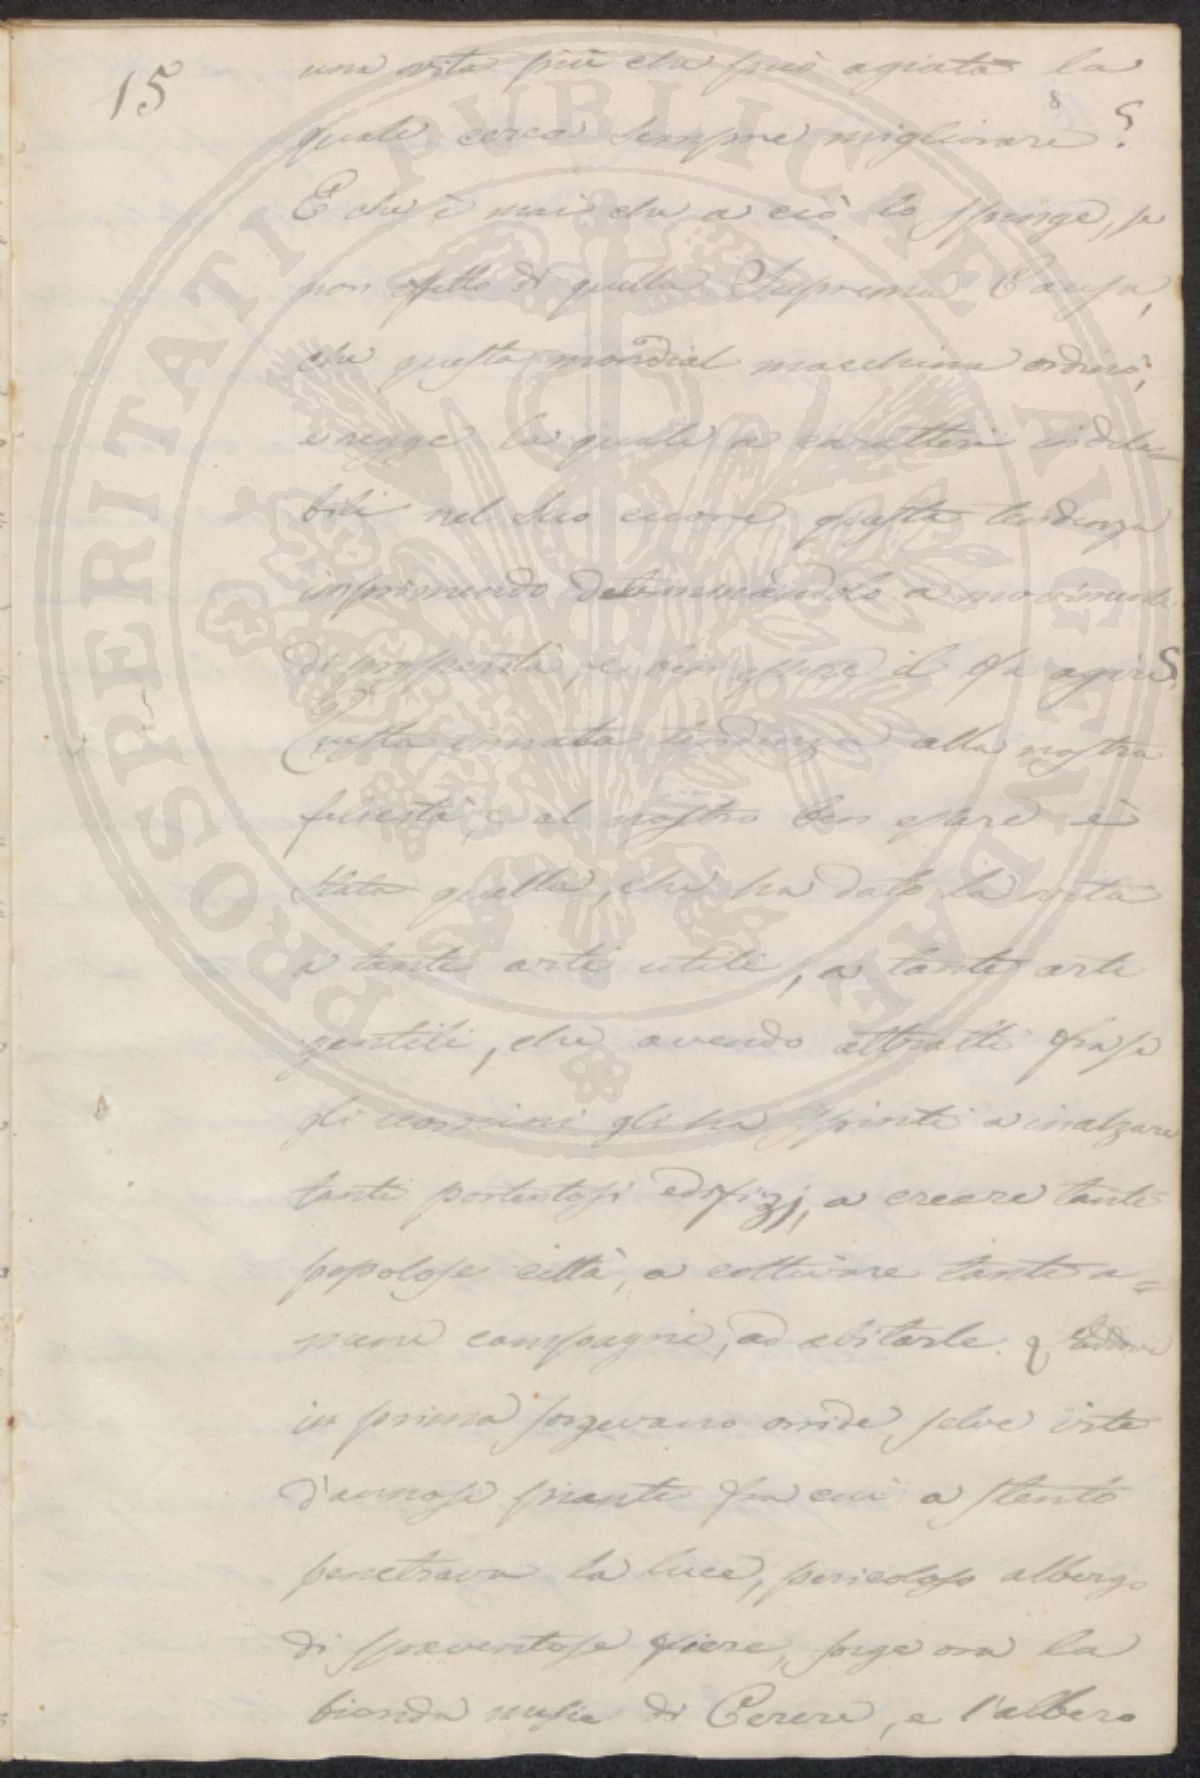 15
8
una vita più che può agiata la
quale cerca sempre migliorare?
E che è mai che a ciò lo spinge, se
non effetto di quella Suprema Causa,
che questa mondial macchina ordinò,
e regge la quale a caratteri indele=
bili nel suo cuore questa tendenza
imprimendo determinandolo a movimenti
di prosperità, e ben essere il fa agire?
Questa innata tendenza alla nostra
felicità, e al nostro ben essere è
stata quella, che ha dato la vita
a tante arti utili, a tante arti
gentili, che avendo attratti fra se
gli uomini gli ha spinti a inalzare
tanti portentosi edifizj, a creare tante
popolose città, a coltivare tante a=
mene campagne, ad abitarle. Laddove
in prima sorgevano orride selve irte
d'annose piante fra cui a stento
penetrava la luce, pericoloso albergo
di spaventose fiere, sorge ora la
bionda messe di Cerere, e l'albero
PROSPERITATI PVBLICAE AVGENDAE